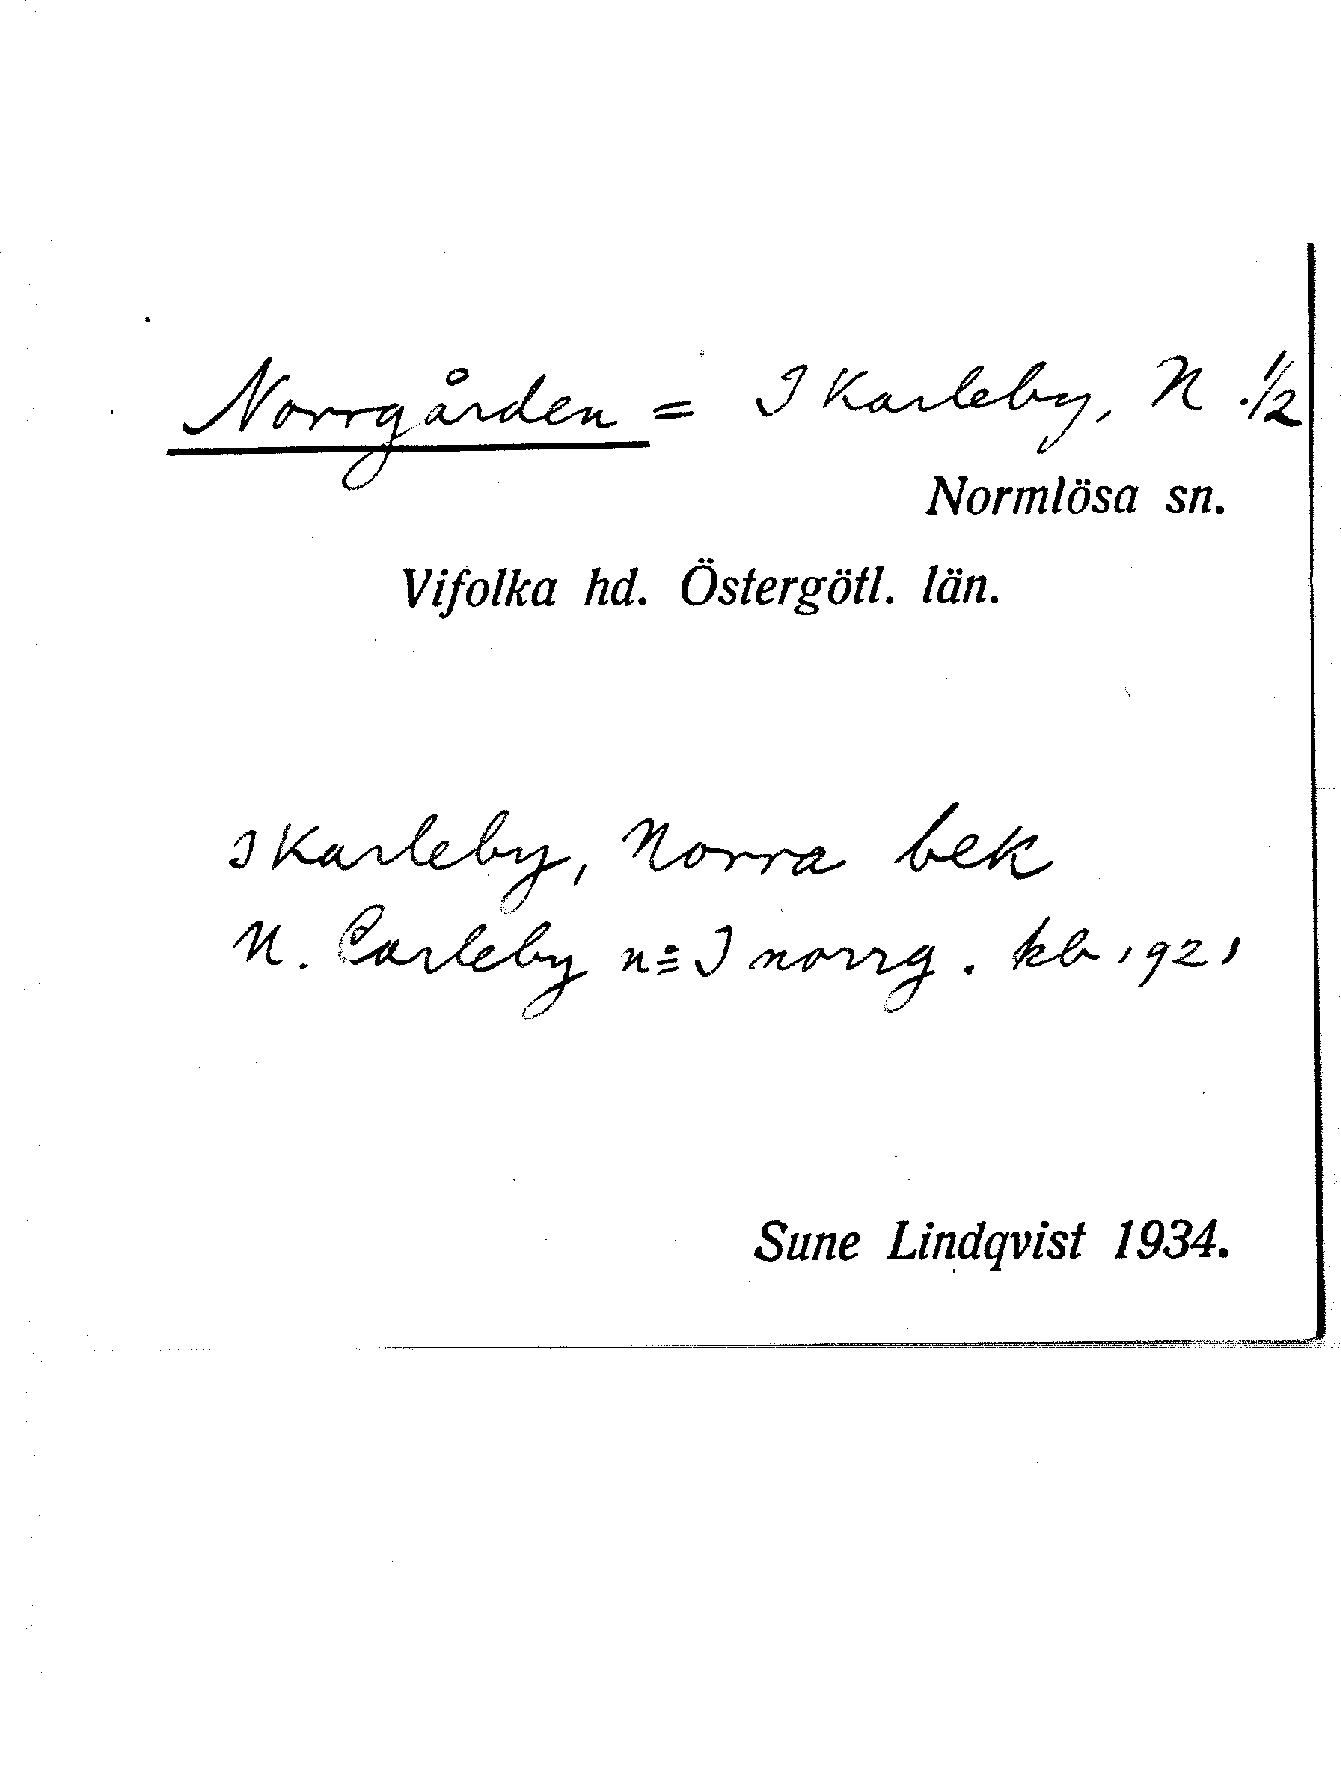 Norrgården = I Karleby, N. 1/2
Normlösa sn.
Vifolka hd. Östergötl. län.
I Karleby, Norra bek
N. Carleby no I norrg. kb 1921
Sune Lindqvist 1934.